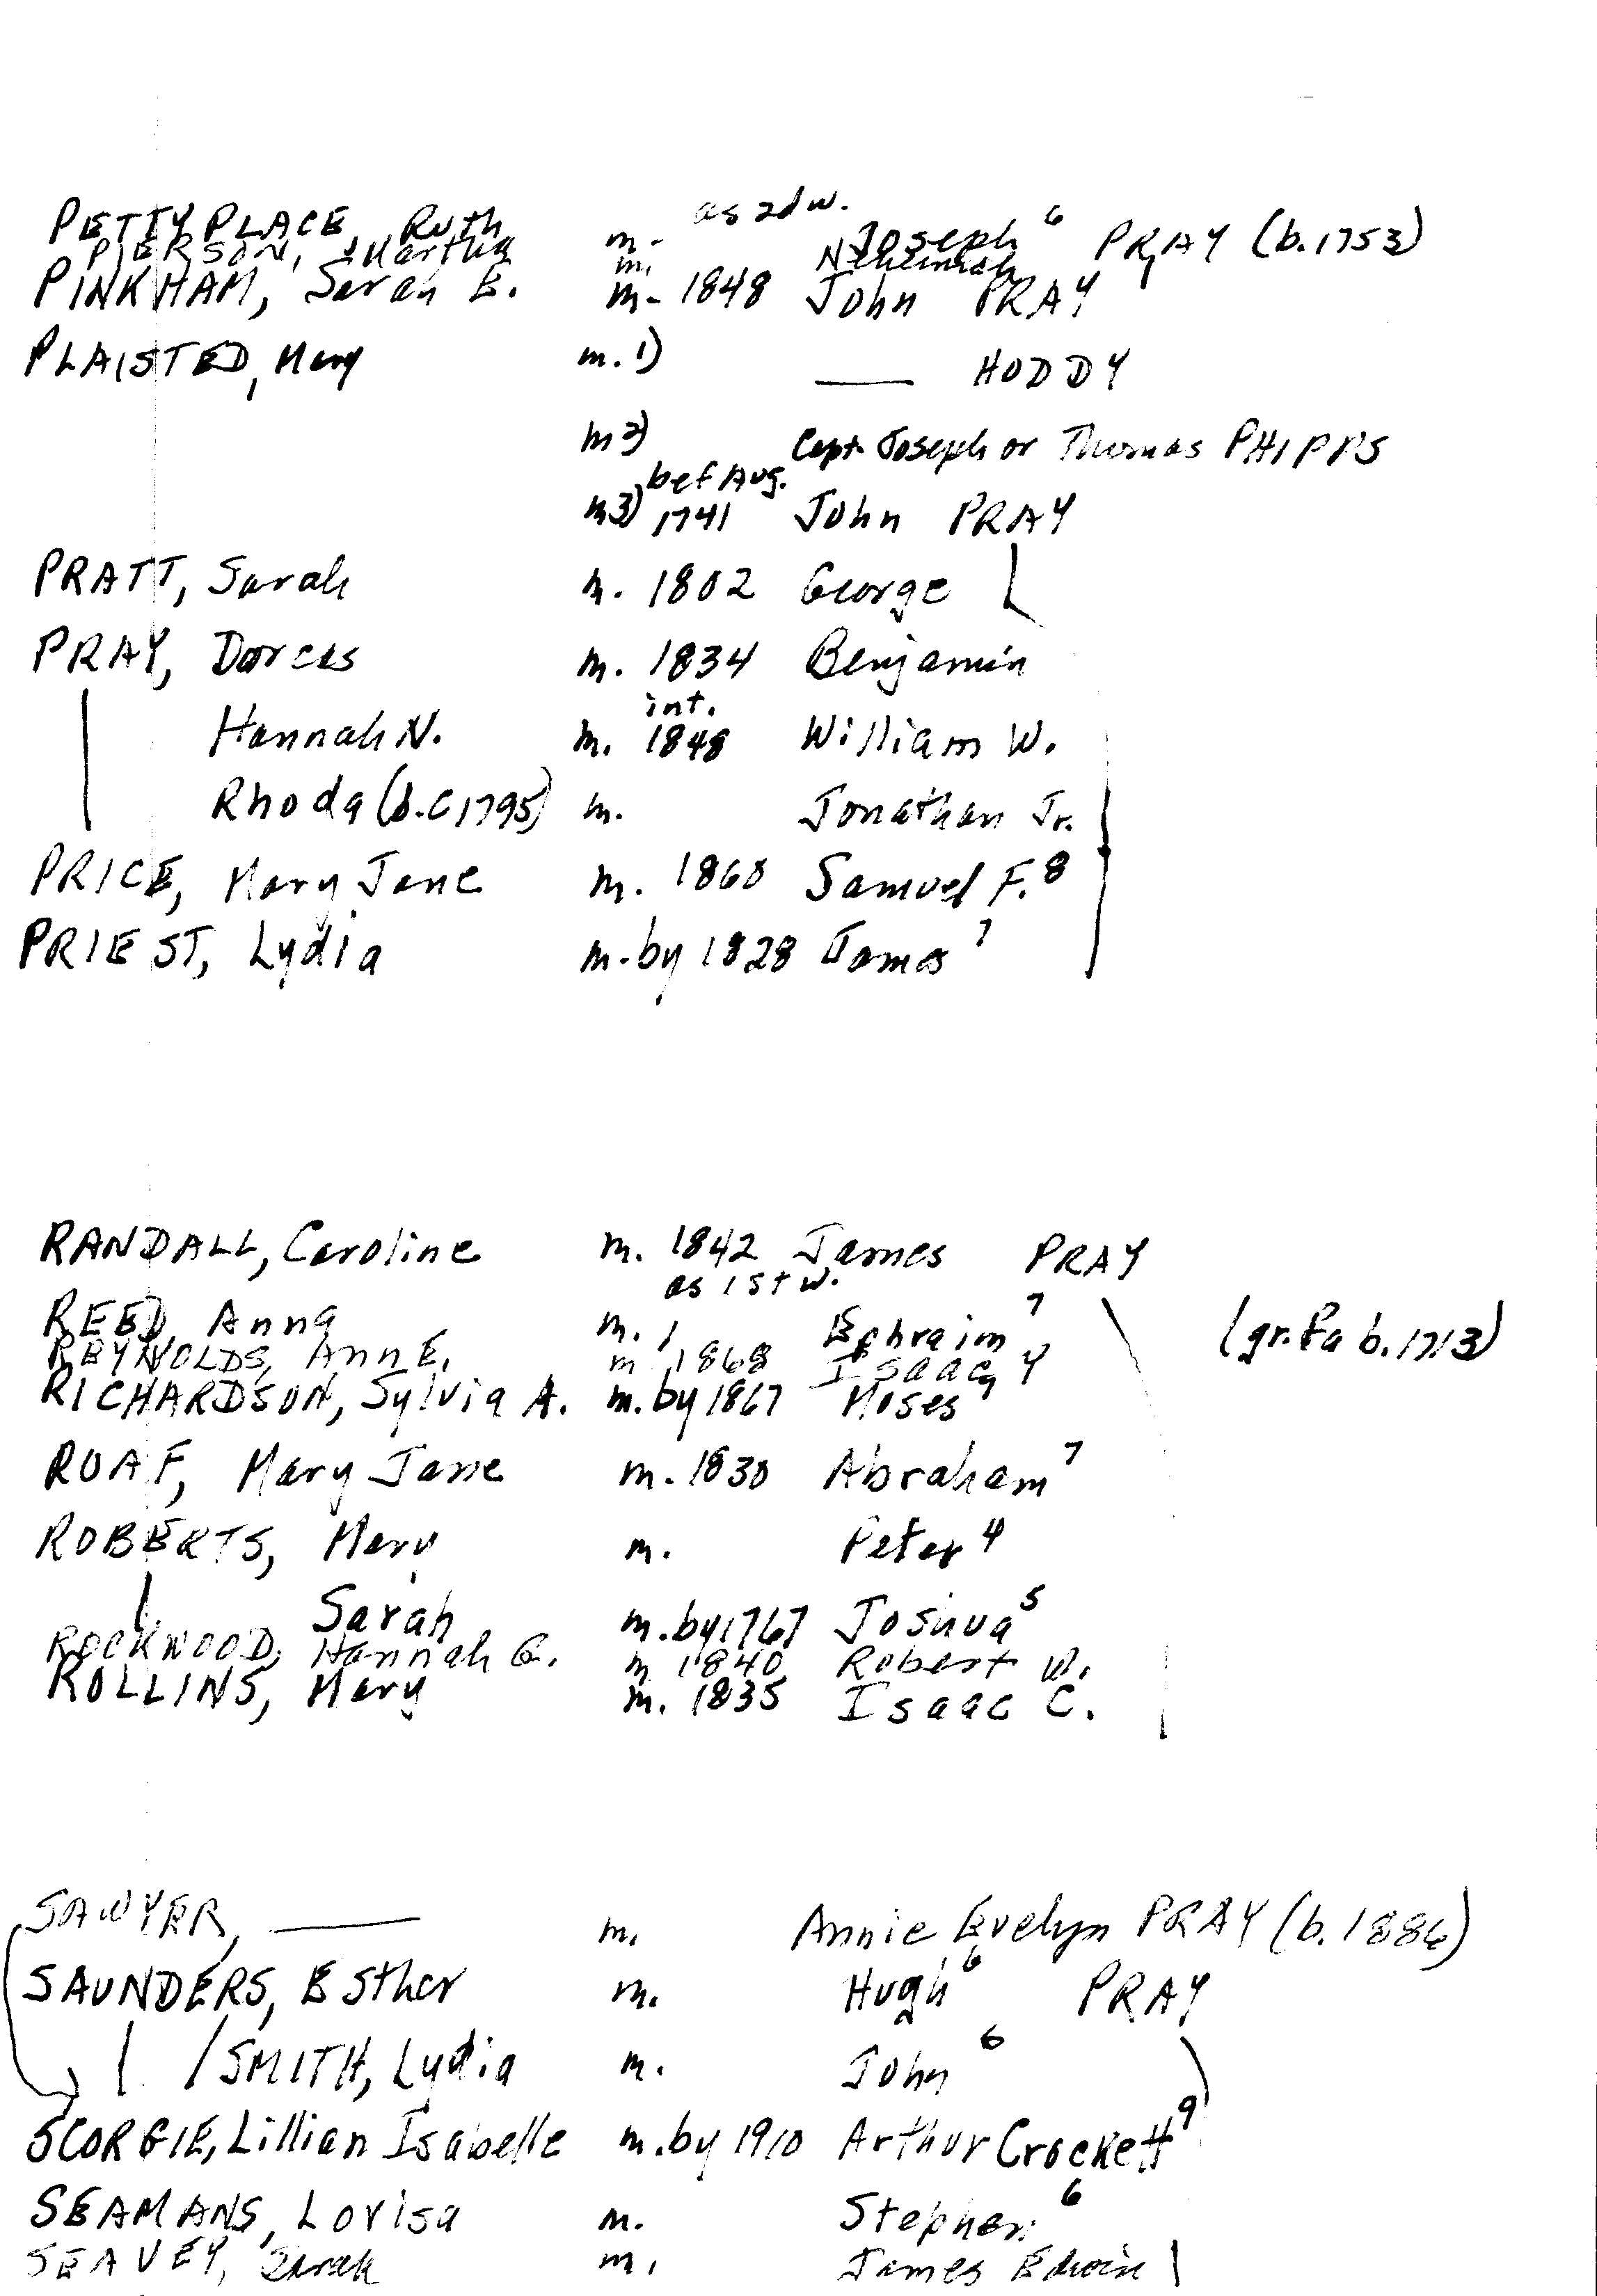 as 2d w.
PETTYPLACE, Ruth m. Joseph 6 PRAY (b. 1753)
PIERSON, Martha m. Nehemiah
PINKHAM, Sarah E. m. 1848 John PRAY
PLAISTED, Mary m. 1) —— HODDY
m 2) Capt. Joseph or Thomas PHIPPS
bef Aug.
m 3) 1741 John PRAY
PRATT, Sarah m. 1802 George
PRAY, Dorcas m. 1834 Benjamin
int.
Hannah N. m. 1848 William W.
Rhoda (b. c 1795) m. Jonathan Jr.
PRICE, Mary Jane m. 1860 Samuel F. 8
PRIEST, Lydia m. by 1828 James 7
RANDALL, Caroline m. 1842 James PRAY
as 1st w.
REED, Anna m. Ephraim 7 (gr. fa b. 1713)
REYNOLDS, Ann E. m. 1868 Isaac Y
RICHARDSON, Sylvia A. m. by 1867 Moses 9
ROAF, Mary Jane m. 1830 Abraham 7
ROBERTS, Mary m. Peter 4
Sarah m. by 1767 Joshua 5
ROCKWOOD, Hannah G. m 1840 Robert W.
ROLLINS, Mary m. 1835 Isaac C.
SAWYER, —— m. Annie Evelyn PRAY (b. 1886)
SAUNDERS, Esther m. Hugh 6 PRAY
/SMITH, Lydia m. John 6
SCORGIE, Lillian Isabelle m. by 1910 Arthur Crockett 9
SEAMANS, Lovisa m. Stephen 6
SEAVEY, Sarah m. James Edwin